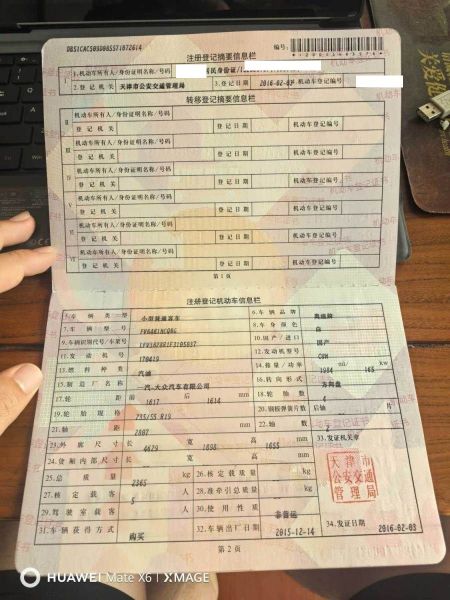 注册登记摘要信息栏
编号:
1.机动车所有人/身份证明名称/号码 居民身份证/
2.登记机关 天津市公安交通管理局 3.登记日期 2016-02-03 4.机动车登记编号
转移登记摘要信息栏
Ⅱ 机动车所有人/身份证明名称/号码
登记机关 登记日期 机动车登记编号
Ⅲ 机动车所有人/身份证明名称/号码
登记机关 登记日期 机动车登记编号
Ⅳ 机动车所有人/身份证明名称/号码
登记机关 登记日期 机动车登记编号
Ⅴ 机动车所有人/身份证明名称/号码
登记机关 登记日期 机动车登记编号
Ⅵ 机动车所有人/身份证明名称/号码
登记机关 登记日期 机动车登记编号
Ⅶ 机动车所有人/身份证明名称/号码
登记机关 登记日期 机动车登记编号
第1页
注册登记机动车信息栏
5.车辆类型 小型普通客车 6.车辆品牌 奥迪牌
7.车辆型号 8.车身颜色 白
9.车辆识别代号/车架号 10.国产/进口 国产
11.发动机号 170419 12.发动机型号 CUH
13.燃料种类 汽油 14.排量/功率 1984 ml/ 165 kw
15.制造厂名称 一汽-大众汽车有限公司 16.转向形式 方向盘
17.轮距 前 1617 后 1614 mm 18.轮胎数 4
19.轮胎规格 235/55 R19 20.钢板弹簧片数 后轴 片
21.轴距 2807 mm 22.轴数 2
23.外廓尺寸 长 4629 宽 1898 高 1655 mm 33.发证机关章
24.货厢内部尺寸 长 宽 高 mm
25.总质量 2365 kg 26.核定载质量 kg
27.核定载客 5 人 28.准牵引总质量 kg
29.驾驶室载客 人 30.使用性质 非营运
31.车辆获得方式 购买 32.车辆出厂日期 2015-12-14 34.发证日期 2016-02-03
天津市
公安交通
管理局
第2页
HUAWEI Mate X6 | XMAGE